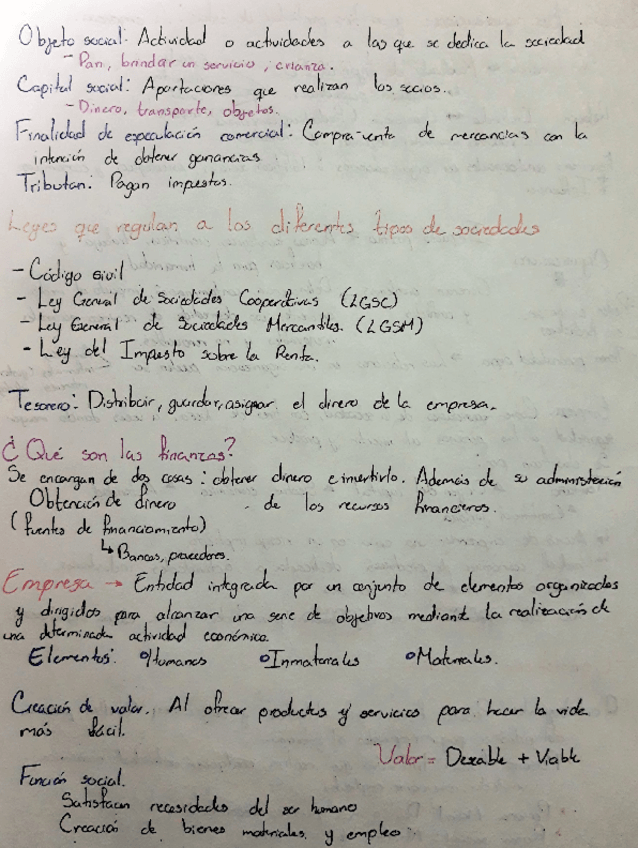 Objeto social: Actividad o actividades a las que se dedica la sociedad
- Pan, brindar un servicio, crianza.
Capital social: Aportaciones que realizan los socios.
- Dinero, transporte, objetos.
Finalidad de especulación comercial: Compra-venta de mercancías con la
intención de obtener ganancias
Tributan: Pagan impuestos.
Leyes que regulan a los diferentes tipos de sociedades
- Código civil
- Ley General de Sociedades Cooperativas (LGSC)
- Ley General de Sociedades Mercantiles. (LGSM)
- Ley del Impuesto sobre la Renta.
Tesorero: Distribuir, guardar, asignar el dinero de la empresa.
¿Qué son las finanzas?
Se encargan de dos cosas: obtener dinero e invertirlo. Además de su administración
Obtención de dinero . de los recursos financieros.
(fuentes de financiamiento)
↳ Bancos, proveedores.
Empresa → Entidad integrada por un conjunto de elementos organizados
y dirigidos para alcanzar una serie de objetivos mediante la realización de
una determinada actividad económica.
Elementos: ° Humanos ° Inmateriales ° Materiales.
Creación de valor. Al ofrecer productos y servicios para hacer la vida
más fácil.
Valor = Deseable + Viable
Función social.
Satisfacen necesidades del ser humano
Creación de bienes materiales y empleo